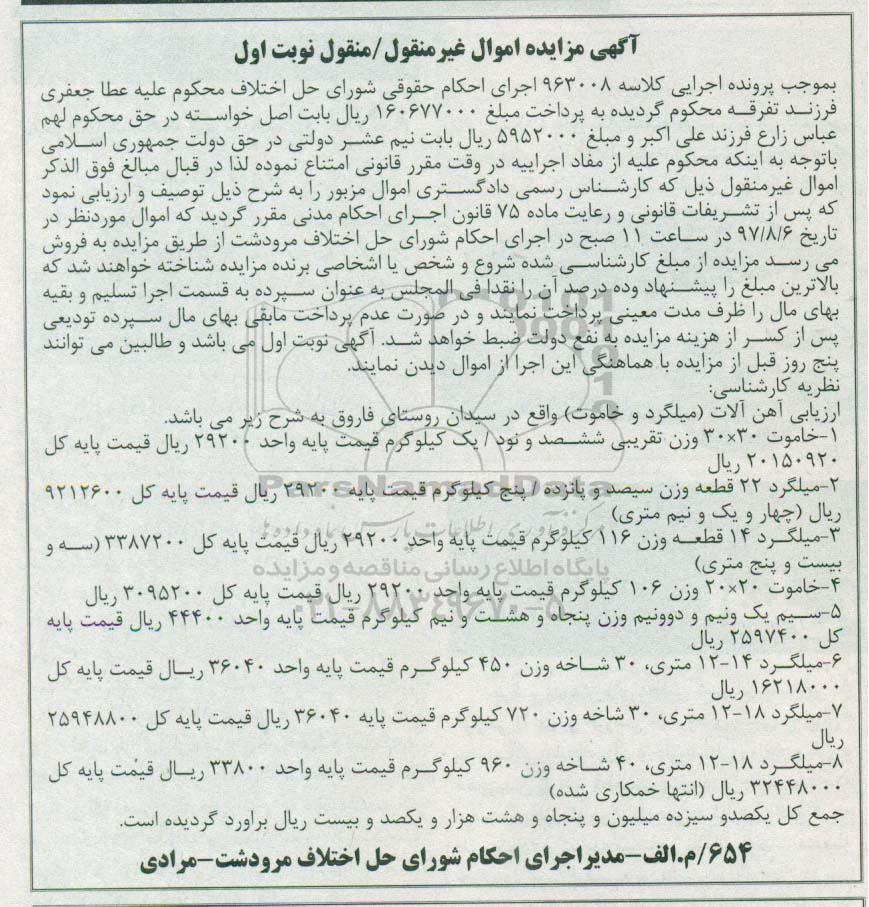 آگهی مزایده اموال غیرمنقول/منقول نوبت اول
بموجب پرونده اجرایی کلاسه ۹۶۳۰۰۸ اجرای احکام حقوقی شورای حل اختلاف محکوم علیه عطا جعفری
فرزند تفرقه محکوم گردیده به پرداخت مبلغ ۱۶۰۶۷۷۰۰۰ ریال بابت اصل خواسته در حق محکوم لهم
عباس زارع فرزند علی اکبر و مبلغ ۵۹۵۲۰۰۰ ریال بابت نیم عشر دولتی در حق دولت جمهوری اسلامی
باتوجه به اینکه محکوم علیه از مفاد اجراییه در وقت مقرر قانونی امتناع نموده لذا در قبال مبالغ فوق الذکر
اموال غیرمنقول ذیل که کارشناس رسمی دادگستری اموال مزبور را به شرح ذیل توصیف و ارزیابی نمود
که پس از تشریفات قانونی و رعایت ماده ۷۵ قانون اجرای احکام مدنی مقرر گردید که اموال موردنظر در
تاریخ ۹۷/۸/۶ در ساعت ۱۱ صبح در اجرای احکام شورای حل اختلاف مرودشت از طریق مزایده به فروش
می رسد مزایده از مبلغ کارشناسی شده شروع و شخص یا اشخاصی برنده مزایده شناخته خواهند شد که
بالاترین مبلغ را پیشنهاد وده درصد آن را نقدا فی المجلس به عنوان سپرده به قسمت اجرا تسلیم و بقیه
بهای مال را ظرف مدت معینی پرداخت نمایند و در صورت عدم پرداخت مابقی بهای مال سپرده تودیعی
پس از کسر از هزینه مزایده به نفع دولت ضبط خواهد شد. آگهی نوبت اول می باشد و طالبین می توانند
پنج روز قبل از مزایده با هماهنگی این اجرا از اموال دیدن نمایند.
نظریه کارشناسی:
ارزیابی آهن آلات (میلگرد و خاموت) واقع در سیدان روستای فاروق به شرح زیر می باشد.
۱-خاموت ۳۰×۳۰ وزن تقریبی ششصد و نود / یک کیلوگرم قیمت پایه واحد ۲۹۲۰۰ ریال قیمت پایه کل
۲۰۱۵۰۹۲۰ ریال
۲-میلگرد ۲۲ قطعه وزن سیصد و پانزده / پنج کیلوگرم قیمت پایه ۲۹۲۰۰ ریال قیمت پایه کل ۹۲۱۲۶۰۰
ریال (چهار و یک و نیم متری)
۳-میلگرد ۱۴ قطعه وزن ۱۱۶ کیلوگرم قیمت پایه واحد ۲۹۲۰۰ ریال قیمت پایه کل ۳۳۸۷۲۰۰ (سه و
بیست و پنج متری)
۴-خاموت ۲۰×۲۰ وزن ۱۰۶ کیلوگرم قیمت پایه واحد ۲۹۲۰۰ ریال قیمت پایه کل ۳۰۹۵۲۰۰ ریال
۵-سیم یک ونیم و دوونیم وزن پنجاه و هشت و نیم کیلوگرم قیمت پایه واحد ۴۴۴۰۰ ریال قیمت پایه
کل ۲۵۹۷۴۰۰ ریال
۶-میلگرد ۱۴-۱۲ متری، ۳۰ شاخه وزن ۴۵۰ کیلوگرم قیمت پایه واحد ۳۶۰۴۰ ریال قیمت پایه کل
۱۶۲۱۸۰۰۰ ریال
۷-میلگرد ۱۸-۱۲ متری، ۳۰ شاخه وزن ۷۲۰ کیلوگرم قیمت پایه ۳۶۰۴۰ ریال قیمت پایه کل ۲۵۹۴۸۸۰۰
ریال
۸-میلگرد ۱۸-۱۲ متری، ۴۰ شاخه وزن ۹۶۰ کیلوگرم قیمت پایه واحد ۳۳۸۰۰ ریال قیمت پایه کل
۳۲۴۴۸۰۰۰ ریال (انتها خمکاری شده)
جمع کل یکصدو سیزده میلیون و پنجاه و هشت هزار و یکصد و بیست ریال براورد گردیده است.
۶۵۴/م.الف-مدیراجرای احکام شورای حل اختلاف مرودشت-مرادی
ParsNamadData
پایگاه اطلاع رسانی مناقصه و مزایده
۰۲۱-۸۸۳۴۹۶۷۰-۵